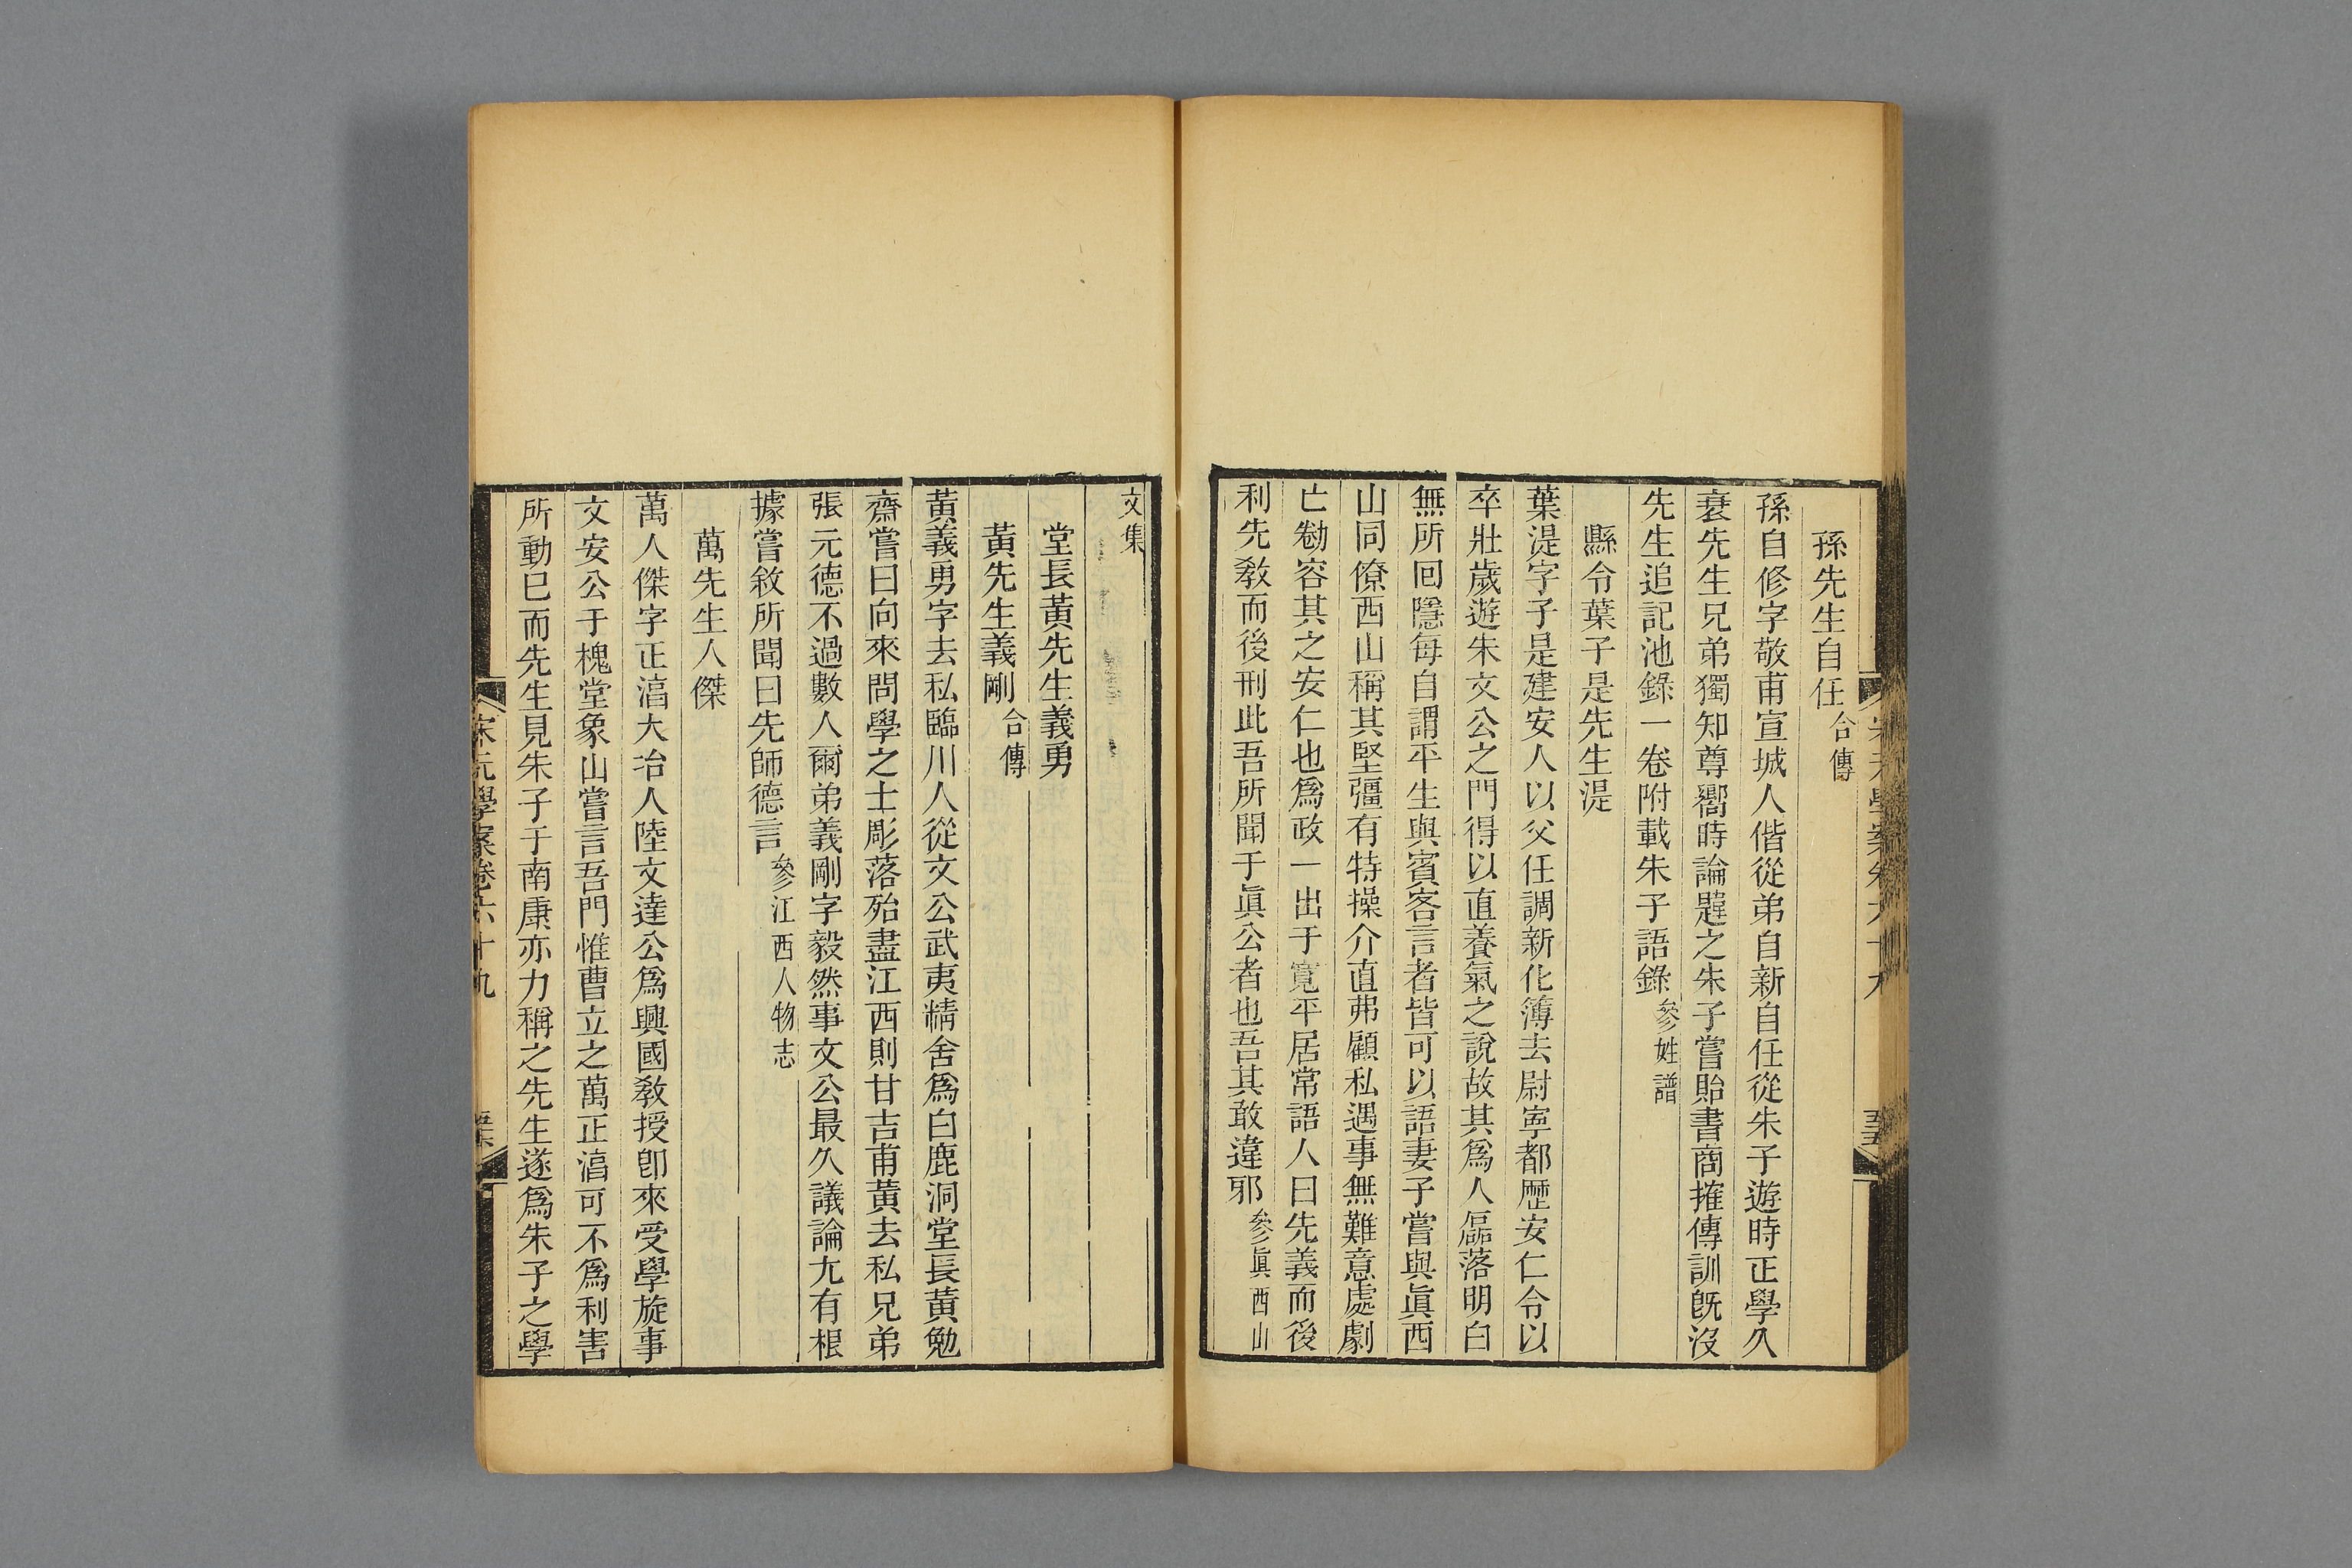 孫先生自任合傳
孫自修字敬甫宣城人偕從弟自新自任從朱子遊時正學久
衰先生兄弟獨知尊嚮時論韙之朱子嘗貽書商搉傳訓旣沒
先生追記池錄一卷附載朱子語錄參姓譜
縣令葉子是先生湜
葉湜字子是建安人以父任調新化簿去尉寧都歷安仁令以
卒壯歲遊朱文公之門得以直養氣之說故其爲人磊落明白
無所囘隱每自謂平生與賓客言者皆可以語妻子嘗與眞西
山同僚西山稱其堅彊有特操介直弗顧私遇事無難意處劇
亡勌容其之安仁也爲政一出于寬平居常語人曰先義而後
利先敎而後刑此吾所聞于眞公者也吾其敢違邪參眞西山
文集
堂長黃先生義勇
黃先生義剛合傳
黃義勇字去私臨川人從文公武夷精舍爲白鹿洞堂長黃勉
齋嘗曰向來問學之士彫落殆盡江西則甘吉甫黃去私兄弟
張元德不過數人爾弟義剛字毅然事文公最久議論尤有根
據嘗敘所聞曰先師德言參江西人物志
萬先生人傑
萬人傑字正淯大冶人陸文達公爲興國敎授卽來受學旋事
文安公于槐堂象山嘗言吾門惟曹立之萬正淯可不爲利害
所動已而先生見朱子于南康亦力稱之先生遂爲朱子之學
宋元學案卷六十九